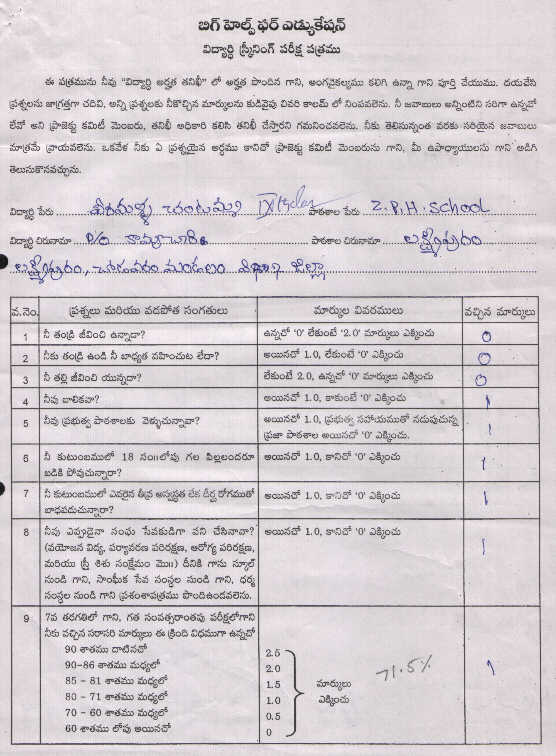 బిగ్ హెల్ప్ ఫర్ ఎడ్యుకేషన్
విద్యార్థి స్క్రీనింగ్ పరీక్ష పత్రము
ఈ పత్రమును నీవు "విద్యార్థి అర్హత తనిఖీ" లో అర్హత పొందిన గాని, అంగవైకల్యము కలిగి ఉన్నా గాని పూర్తి చేయుము. దయచేసి
ప్రశ్నలను జాగ్రత్తగా చదివి, అన్ని ప్రశ్నలకు నీకొచ్చిన మార్కులను కుడివైపు చివరి కాలమ్ లో నింపవలెను. నీ జవాబులు అన్నింటిని సరిగా ఉన్నవో
లేవో అని ప్రాజెక్టు కమిటీ మెంబరు, తనిఖీ అధికారి కలిసి తనిఖీ చేస్తారని గమనించవలెను. నీకు తెలిసినంత వరకు సరియైన జవాబులు
మాత్రమే వ్రాయవలెను. ఒకవేళ నీకు ఏ ప్రశ్నయైన అర్థము కానిచో ప్రాజెక్టు కమిటీ మెంబరును గాని, మీ ఉపాధ్యాయులను గాని అడిగి
తెలుసుకొనవచ్చును.
విద్యార్థి పేరు IX class పాఠశాల పేరు Z.P.H. School
విద్యార్థి చిరునామా D/O కామాచారి పాఠశాల చిరునామా లక్ష్మీపురం
లక్ష్మీపురం, చోడవరం మండలం విశాఖ జిల్లా
వ.నెం. ప్రశ్నలు మరియు వడపోత సంగతులు మార్కుల వివరములు వచ్చిన మార్కులు
1 నీ తండ్రి జీవించి ఉన్నాడా? ఉన్నచో '0' లేకుంటే '2.0' మార్కులు ఎక్కించు 0
2 నీకు తండ్రి ఉండి నీ బాధ్యత వహించుట లేదా? అయినచో 1.0, లేకుంటే '0' ఎక్కించు 0
3 నీ తల్లి జీవించి యున్నదా? లేకుంటే 2.0, ఉన్నచో '0' మార్కులు ఎక్కించు 0
4 నీవు బాలికవా? అయినచో 1.0, కాకుంటే '0' ఎక్కించు 1
5 నీవు ప్రభుత్వ పాఠశాలకు వెళ్ళుచున్నావా? అయినచో 1.0, ప్రభుత్వ సహాయముతో నడుపుచున్న
ప్రజా పాఠశాల అయినచో '0' ఎక్కించు. 1
6 నీ కుటుంబములో 18 సం॥లోపు గల పిల్లలందరూ
బడికి పోవుచున్నారా? అయినచో 1.0, కానిచో '0' ఎక్కించు 1
7 నీ కుటుంబములో ఎవరైన తీవ్ర అస్వస్థత లేక దీర్ఘ రోగముతో
బాధపడుచున్నారా? అయినచో 1.0, కానిచో '0' ఎక్కించు 1
8 నీవు ఎప్పుడైనా సంఘ సేవకుడిగా పని చేసినావా?
(వయోజన విద్య, పర్యావరణ పరిరక్షణ, ఆరోగ్య పరిరక్షణ,
మరియు స్త్రీ శిశు సంక్షేమం మొ॥) దీనికి గాను స్కూల్
నుండి గాని, సాంఘీక సేవ సంస్థల నుండి గాని, ధర్మ
సంస్థల నుండి గాని ప్రశంశాపత్రము పొందిఉండవలెను. అయినచో 1.0, కానిచో '0' ఎక్కించు 1
9 7వ తరగతిలో గాని, గత సంవత్సరాంతపు పరీక్షలోగాని
నీకు వచ్చిన సరాసరి మార్కులు ఈ క్రింది విధముగా ఉన్నచో
90 శాతము దాటినచో 2.5
90-86 శాతము మధ్యలో 2.0
85 - 81 శాతము మధ్యలో 1.5 మార్కులు 71.5% 1
80 - 71 శాతము మధ్యలో 1.0 ఎక్కించు
70 - 60 శాతము మధ్యలో 0.5
60 శాతము లోపు అయినచో 0